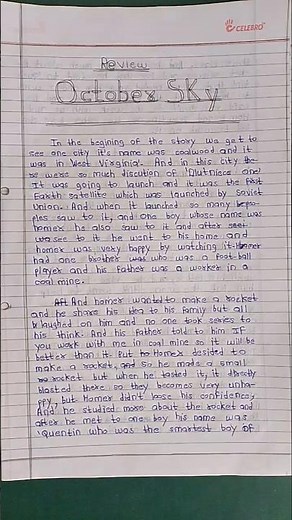 CELEBRO
Review
October Sky
In the begining of the story we get to
see one city it's name was coalwood and it
was in West Virginia. And in this city the-
re were so much discution of
It was going to launch and it was the first
Earth satellite which was launched by Soviet
Union. And when it launched so many
ples saw to it, and one boy whose name was
homer he also saw to it and after
to it he went to his home and
homer was very happy by watching it. Homer
had one brother who was a foot ball
player and his father was a worker in a
coal mine.
And homer wanted to make a rocket
and he share his idea to his family but all
laughed on him and no one took series to
his think. And his father told him If
you work with me in coal mine so it will be
better than it. But Homer desided to
make a rocket, So he made a small
rocket but when he tasted it, it directly
blasted there so they becomes very unha-
ppy, but Homer didn't lose his confidence,
And he studied more about the rocket and
after he met to one boy his name was
'Quentin who was the smartest boy of